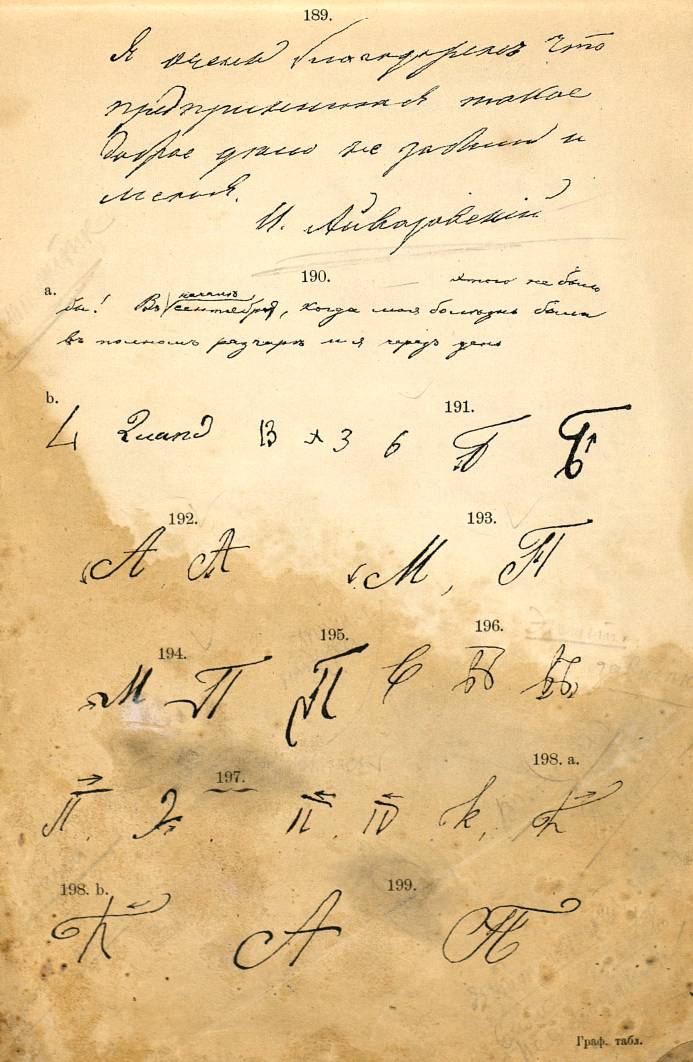 189.
Я очень благодаренъ что
предпринимая такое
доброе дѣло не забыли и
меня.
И. Айвазовскій
190.
a.
этого не было
бы! Въ началѣ сентября, когда моя болѣзнь была
въ полномъ разгарѣ и я черезъ день
b.
191.
13 + 3 6 П
192.
193.
А А М, П
194.
195.
196.
М П П С
197.
198. a.
П. II. IV k,
198. b.
199.
А П
Граф. табл.